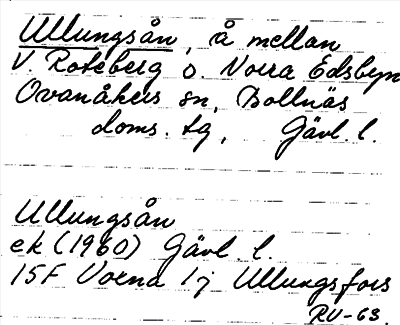 Ullungsån, å mellan
V. Roteberg o. Norra Edsbyn
Ovanåkers sn, Bollnäs
doms. tg, Gävl. l.
Ullungsån
ek (1960) Gävl. l.
15F Voxna 1j Ullungsfors
RV-63.